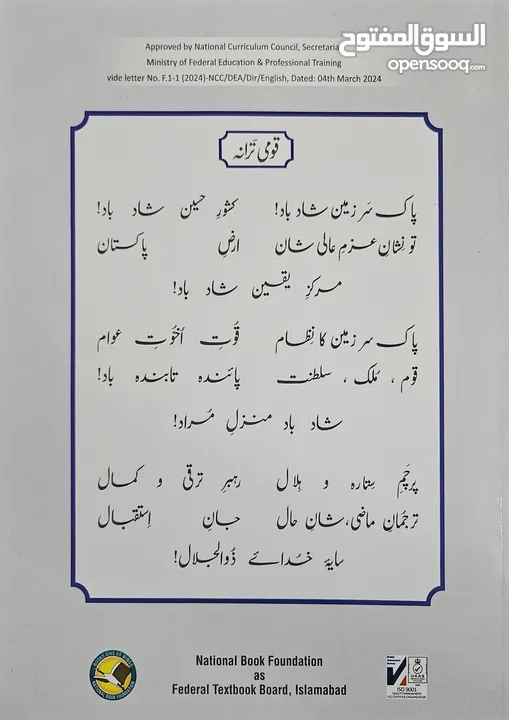 السوق المفتوح
opensooq.com
Approved by National Curriculum Council, Secretariat
Ministry of Federal Education & Professional Training
vide letter No. F.1-1 (2024)-NCC/DEA/Dir/English, Dated: 04th March 2024
قومی ترانہ
پاک سَر زمین شاد باد! کشورِ حسین شاد باد!
تو نِشانِ عزمِ عالی شان ارضِ پاکستان
مرکزِ یقین شاد باد!
پاک سر زمین کا نِظام قُوتِ اُخُوتِ عوام
قوم ، مُلک ، سلطنت پائندہ تابندہ باد!
شاد باد منزلِ مُراد!
پرچَمِ سِتارہ و ہِلال رہبرِ ترقی و کمال
ترجُمانِ ماضی، شانِ حال جانِ اِستقبال
سایۂ خُدائے ذُوالجلال!
National Book Foundation
as
Federal Textbook Board, Islamabad
UKAS
ISO 9001